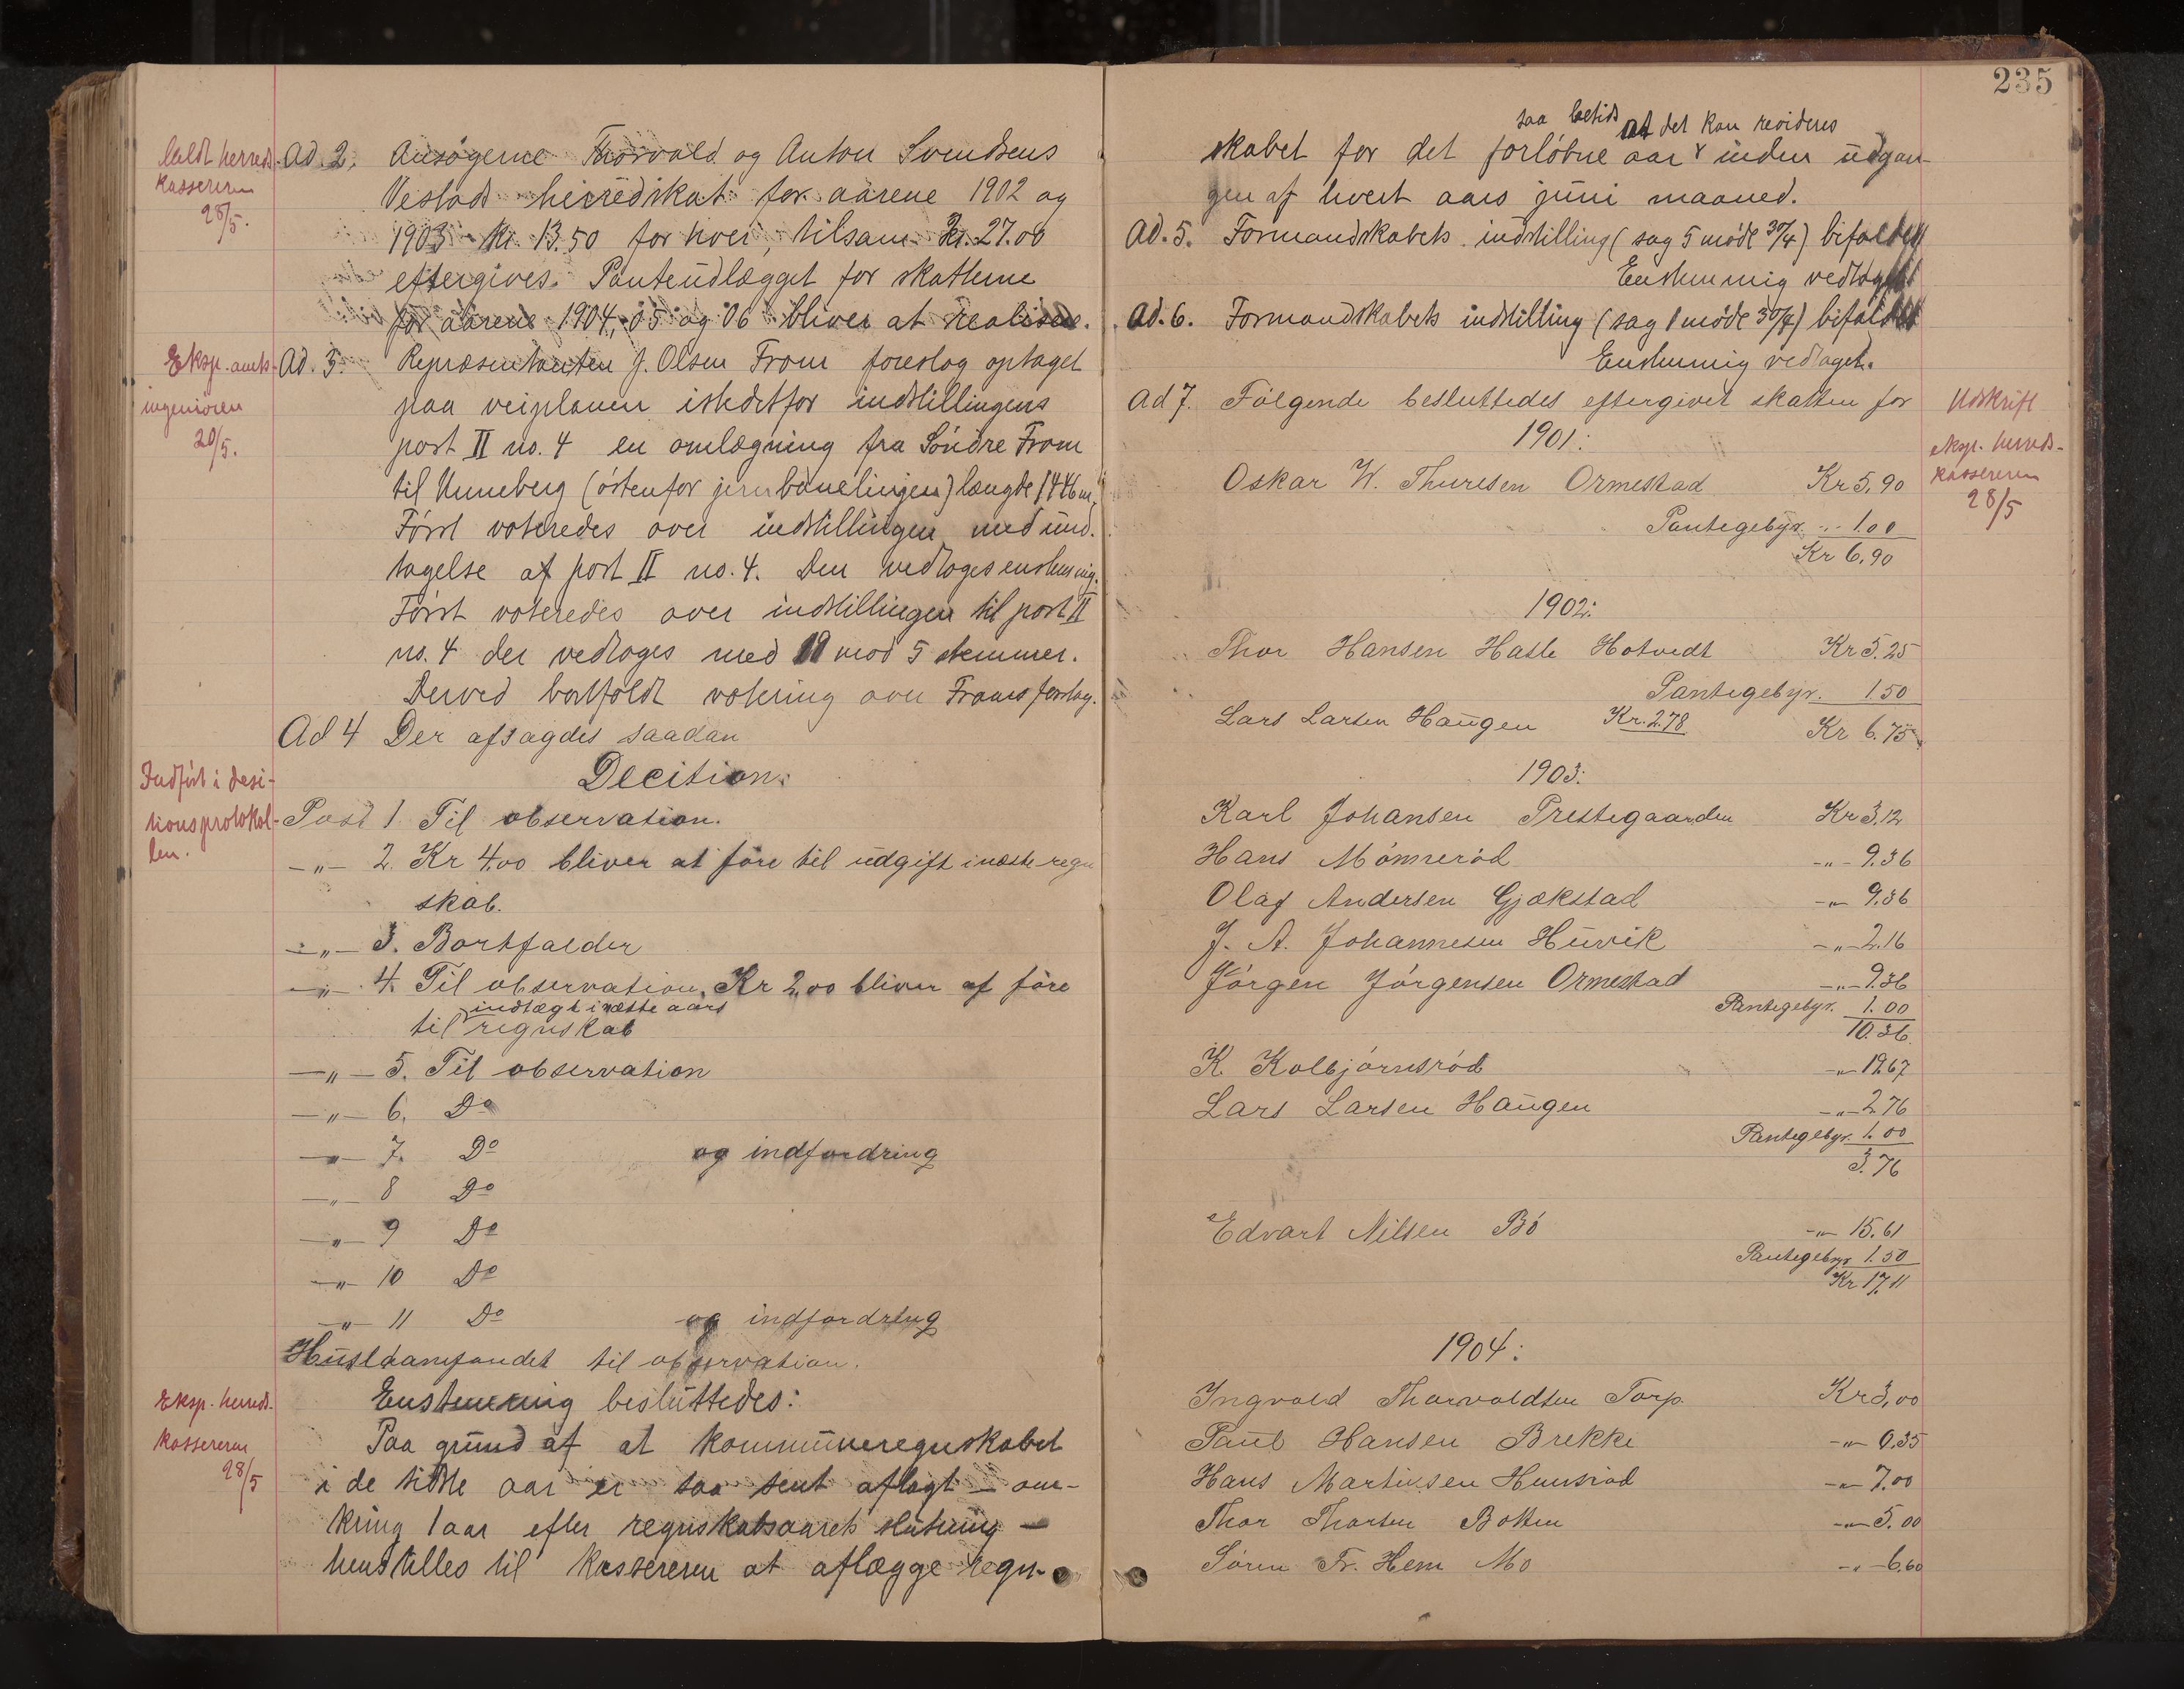 Ad. 2. Ansøgerne Thorvald og Anton Svendsens
Vestad herredskat for aarene 1902 og
1903 kr. 13.50 for hver, tilsam. kr. 27.00
eftergives. Panteudlægget for skatterne
for aarene 1904, 05 og 06 bliver at realisere.
Ad. 3. Repræsentanten J. Olsen From foreslog optaget
paa veiplanen istedetfor indstillingens
post II no. 4 en omlægning fra Söndre From
til Unneberg (östenfor jernbanelinjen) længde 1446 m.
Först voteredes over indstillingen med und-
tagelse af post II no. 4. Den vedtoges enstemmig.
Först voteredes over indstillingen til post II
no. 4 der vedtoges med 19 mod 5 stemmer.
Derved bortfaldt votering over Froms forslag.
Ad 4 Der afsagdes saadan
Decition:
Post 1. Til observation.
—„— 2. Kr 4.00 bliver at före til udgift i næste regn
skab.
—„— 3. Bortfalder
—„— 4. Til observation. Kr 2,00 bliver af före
indtægt i næste aars
til regnskab
—„— 5. Til observation
—„— 6. Do
—„— 7. Do og indfordring
—„— 8 Do
—„— 9 Do
—„— 10 Do
—„— 11 Do og indfordring
Husldaanfondet til observation.
Enstemmig besluttedes:
Paa grund af at kommuneregnskabet
i de sidste aar er saa sent aflagt – om-
kring 1 aar efter regnskabsaarets slutning –
henstilles til kassereren at aflægge regn-
Meldt herreds-
kassereren
28/5.
Eksp. amts-
ingeniören
28/5.
Indfört i desi-
tionsprotokol-
len.
Eksp. herreds-
kassereren
28/5
235
saa betids at det kan revideres
skabet for det forløbne aar inden udgan-
gen af hvert aars juni maaned.
Ad. 5. Formandskabets indstilling (sag 5 møde 30/4) bifaldes
Enstemmig vedtaget
Ad. 6. Formandskabets indstilling (sag 1 møde 30/4) bifaldes
Enstemmig vedtaget.
Ad 7. Følgende besluttedes eftergivet skatten for
1901:
Oskar W. Thuresen Ormestad Kr 5,90
Pantegebyr. 1.00
Kr 6,90
1902:
Thor Hansen Hasle Hotvedt Kr 5.25
Pantegebyr. 1.50
Lars Larsen Haugen Kr. 2.78 Kr 6.75
1903:
Karl Johansen Prestegaarden Kr 3,12
Hans Mönneröd —„— 9.36
Olaf Andersen Gjekstad —„— 9.36
J. A. Johannesen Huvik —„— 2.16
Jörgen Jörgensen Ormestad —„— 9.36
Pantegebyr. 1.00
10.36
K. Kolbjörnsröd —„— 19.67
Lars Larsen Haugen —„— 2.76
Pantegebyr. 1.00
3.76
Edvart Nilsen Bö —„— 15.61
Pantegebyr 1.50
Kr 17,11
1904:
Ingvald Thorvaldsen Torp. Kr 3,00
Paul Hansen Brekke —„— 0.35
Hans Martinsen Hunsröd —„— 7.00
Thor Thorsen Botten —„— 5.00
Sören Fr. Hem Mo —„— 6.60
Udskrift
eksp. herreds-
kassereren
28/5